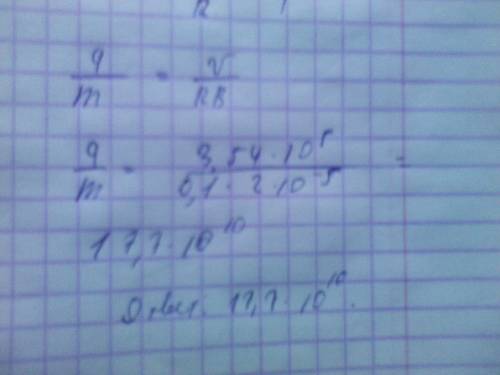 q/m = v/RB
q/m = 3,54·10⁵ / 0,1·2·10⁻⁵ =
17,7·10¹⁰
Ответ: 17,7·10¹⁰.